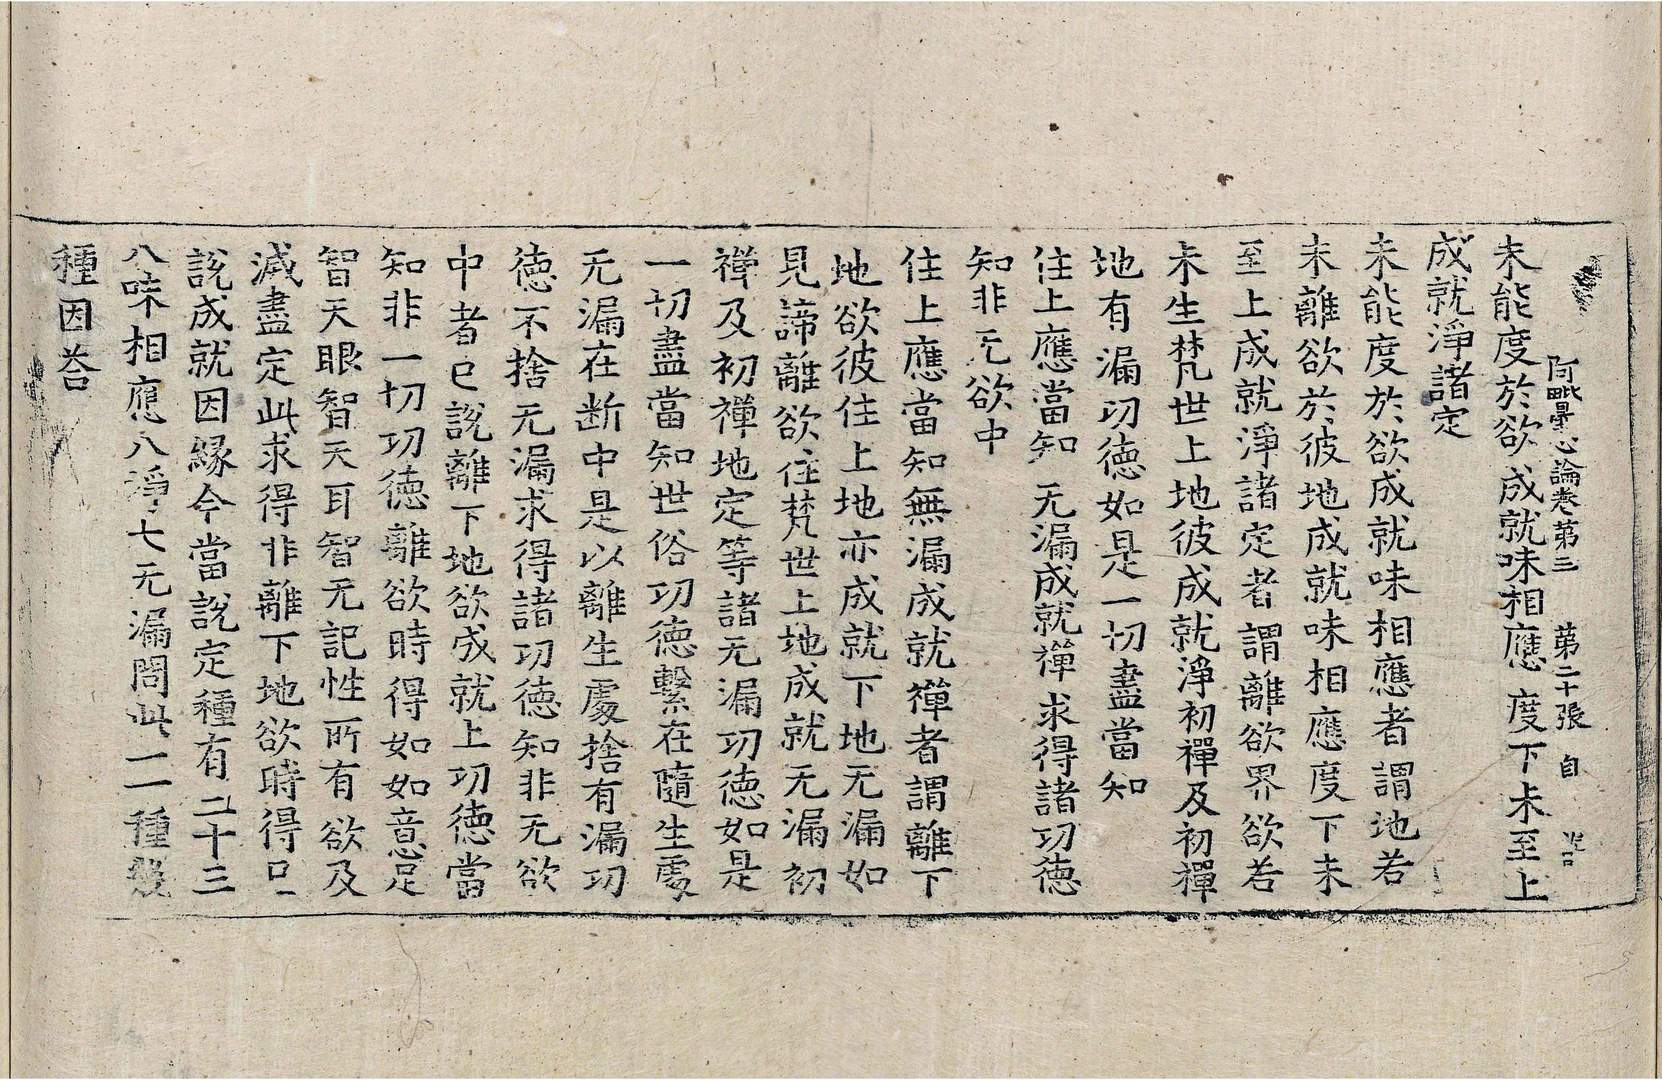 阿毗曇心論卷第三 第二十張 自
未能度於欲成就味相應度下未至上
成就淨諸定
未能度於欲成就味相應者謂地若
未離欲於彼地成就味相應度下未
至上成就淨諸定者謂離欲界欲若
未生梵世上地彼成就淨初禪及初禪
地有漏功德如是一切盡當知
住上應當知无漏成就禪求得諸功德
知非无欲中
住上應當知無漏成就禪者謂離下
地欲彼住上地亦成就下地无漏如
見諦離欲住梵世上地成就无漏初
禪及初禪地定等諸无漏功德如是
一切盡當知世俗功德繫在隨生處
无漏在斷中是以離生處捨有漏功
德不捨无漏求得諸功德知非无欲
中者已說離下地欲成就上功德當
知非一切功德離欲時得如如意足
智天眼智天耳智无記性所有欲及
滅盡定此求得非離下地欲時得已
說成就因緣今當說定種有二十三
八味相應八淨七无漏問此一一種幾
種因荅